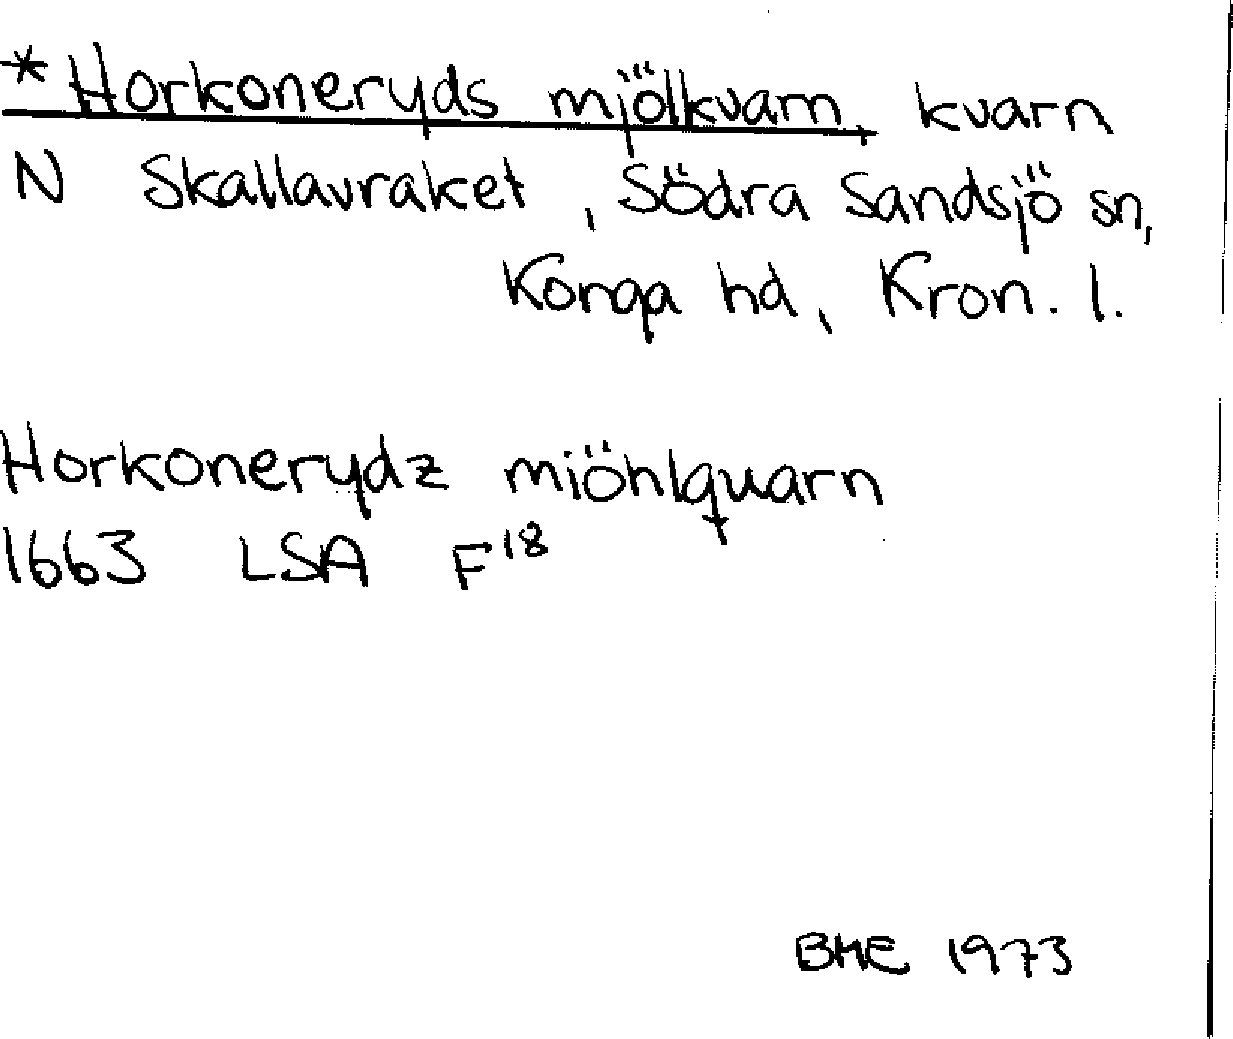 *Horkoneryds mjölkvarn, kvarn
N Skallavraket, Södra Sandsjö sn,
Konga hd, Kron. l.
Horkonerydz miöhlquarn
1663 LSA F18
BHE 1973